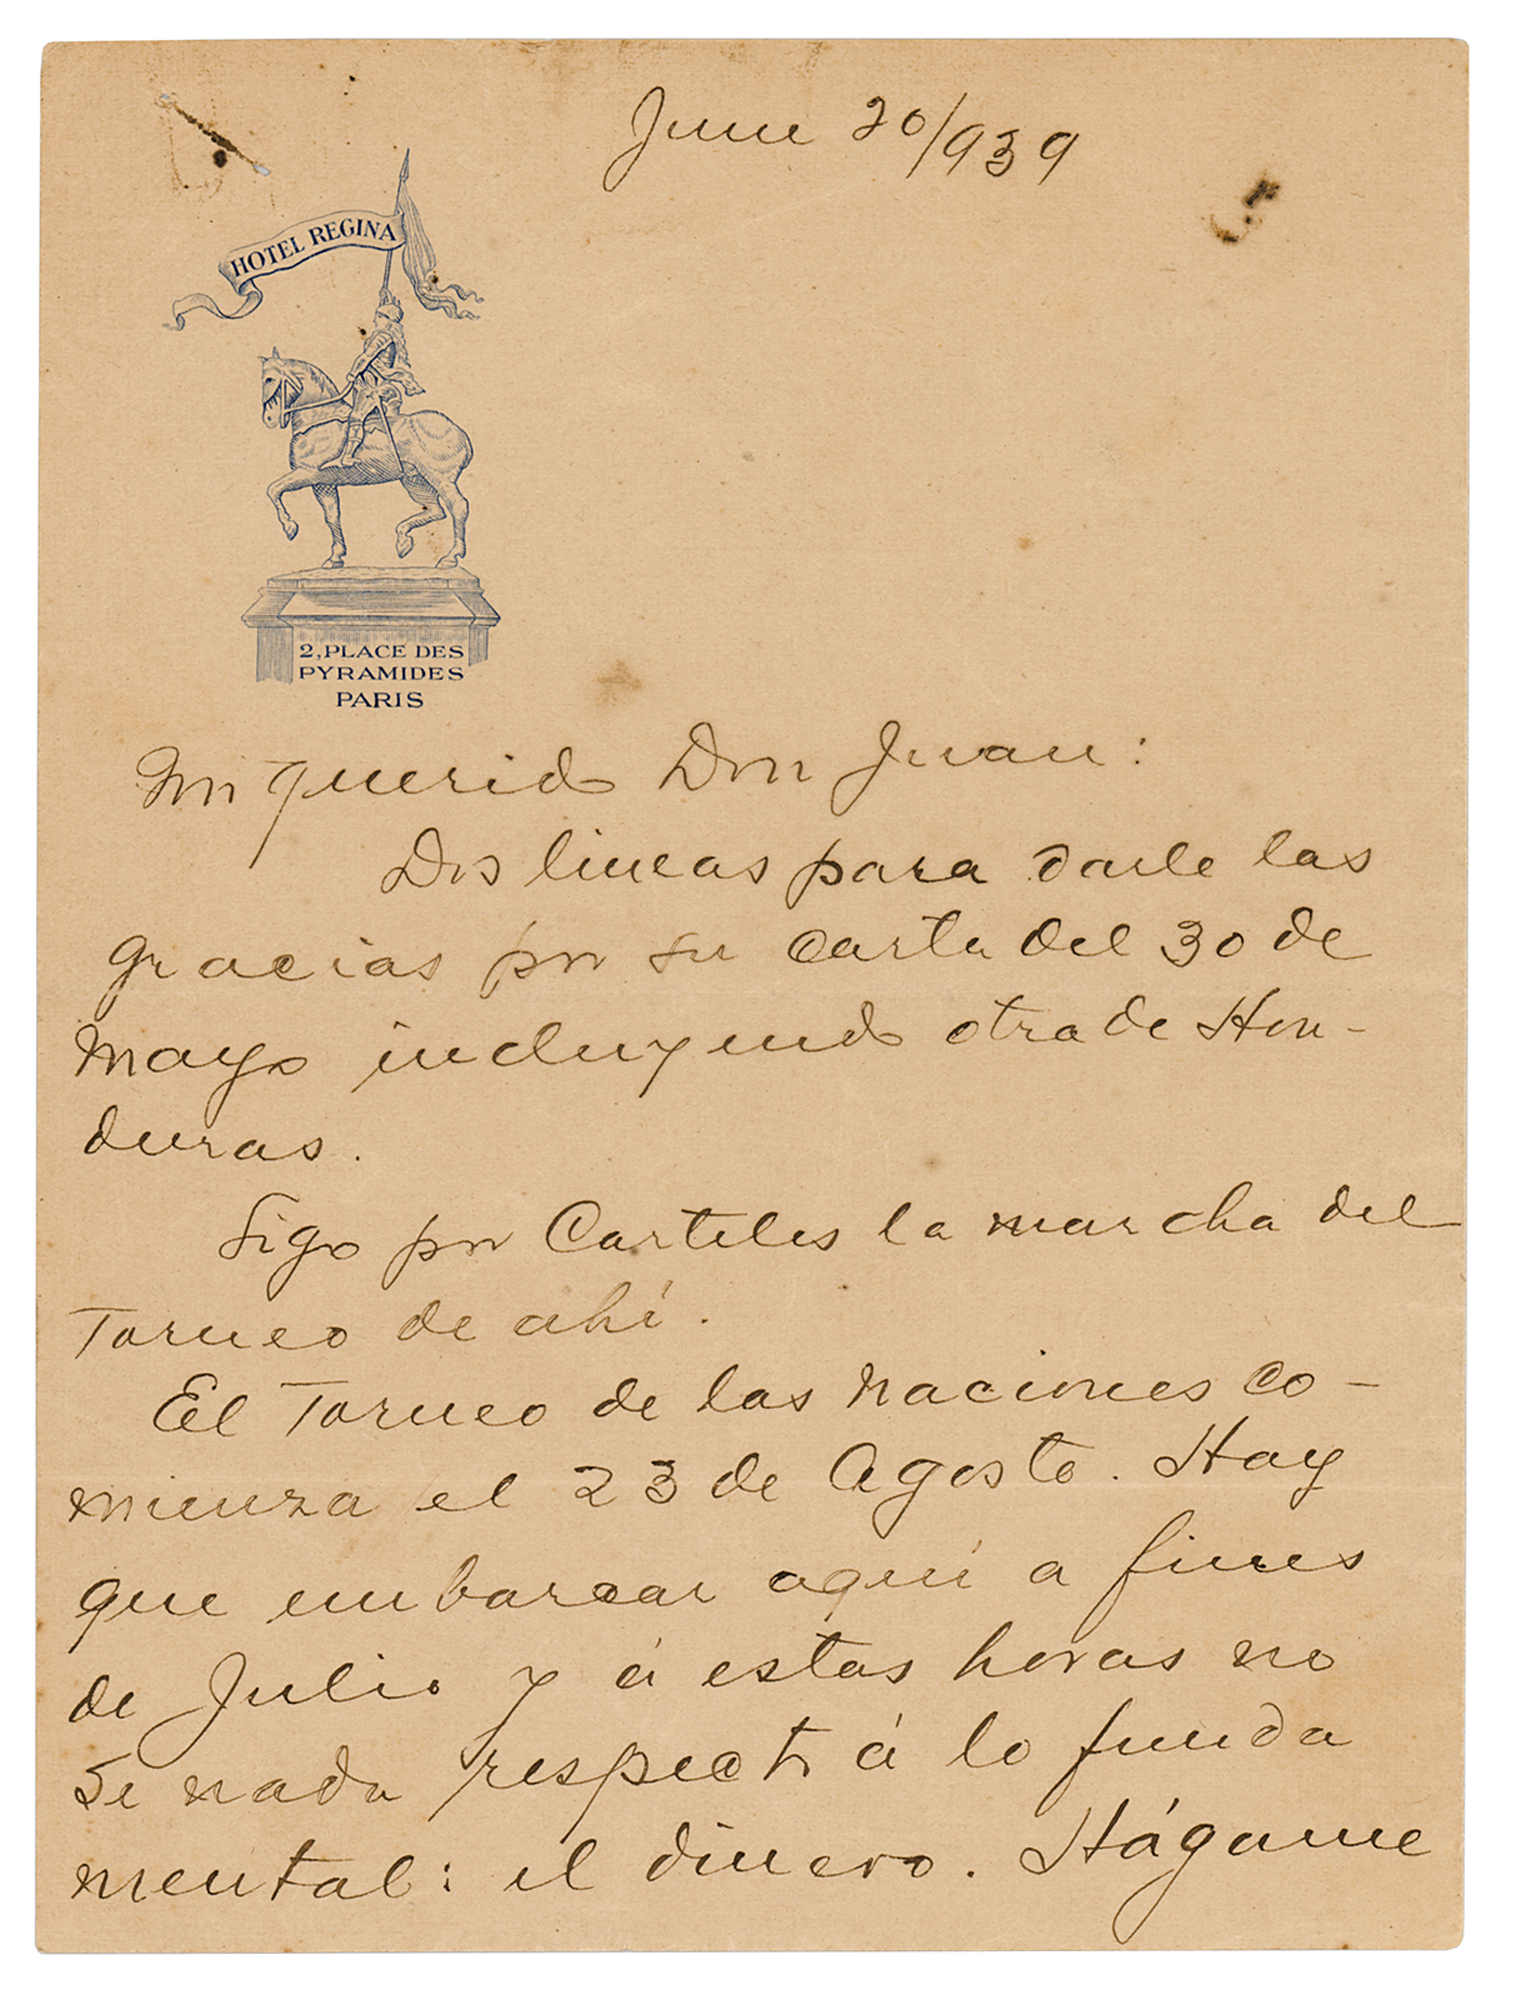 June 20/939
HOTEL REGINA
2, PLACE DES
PYRAMIDES
PARIS
Mi querido Don Juan:
Dos lineas para darle las
gracias por su carta del 30 de
Mayo incluyendo otra de Hon-
duras.
Sigo por Carteles la marcha del
Torneo de ahí.
El Torneo de las naciones co-
mienza el 23 de Agosto. Hay
que embarcar aquí a fines
de Julio y á estas horas no
se nada respecto á lo funda
mental: el dinero. Hágame